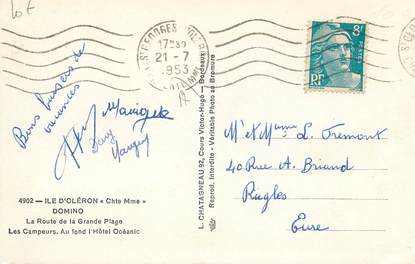 10 €
ST GEORGES D'OLERON
17H30
21-7
1953
CHTE MME
8F
POSTES
RF
Bons baisers de
vacances
Dany
L. CHATAGNEAU 92, Cours Victor-Hugo - Bordeaux
Reprod. Interdite - Véritable Photo au Bromure
Mr et Mame L. Fremont
40 Rue A. Briand
Rugles
Eure
4902 — ILE D'OLÉRON « Chte Mme »
DOMINO
La Route de la Grande Plage
Les Campeurs, Au fond l'Hôtel Océanic